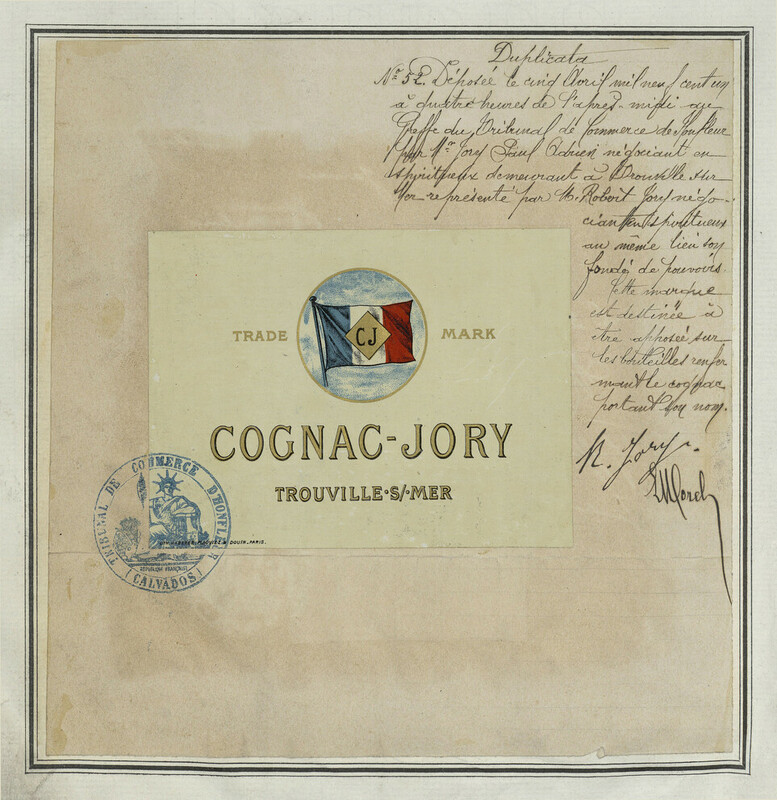 Duplicata
No 52. Déposée le cinq Avril mil neuf cent un
à quatre heures de l'après-midi au
Greffe du Tribunal de Commerce de Honfleur
par Mr Jory Paul Adrien négociant en
spiritueux demeurant à Trouville sur
Mer représenté par M. Robert Jory négo-
ciant en spiritueux
au même lieu son
fondé de pouvoirs.
Cette marque
est destinée à
être apposée sur
les bouteilles renfer
mant le cognac
portant son nom.
R. Jory.
TRADE MARK
CJ
COGNAC-JORY
TROUVILLE·S/·MER
DOUIN, PARIS.
TRIBUNAL DE COMMERCE D'HONFLEUR
RÉPUBLIQUE FRANÇAISE
(CALVADOS)